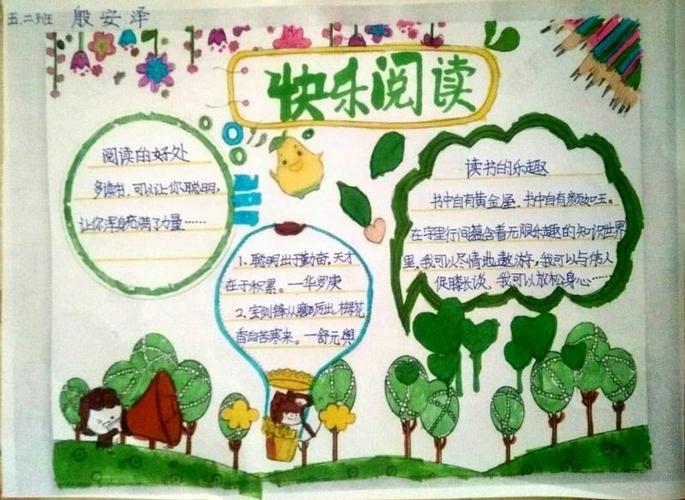 五.二班 殷安泽
快乐阅读
阅读的好处
多读书,可以让你聪明,
让你浑身充满了力量……
1、聪明出于勤奋,天才
在于积累。—华罗庚
2、宝剑锋从磨砺出,梅花
香自苦寒来。—舒元舆
读书的乐趣
书中自有黄金屋、书中自有颜如玉。
在字里行间蕴含着无限乐趣的知识世界
里,我可以尽情地遨游,我可以与伟人
促膝长谈,我可以放松身心……